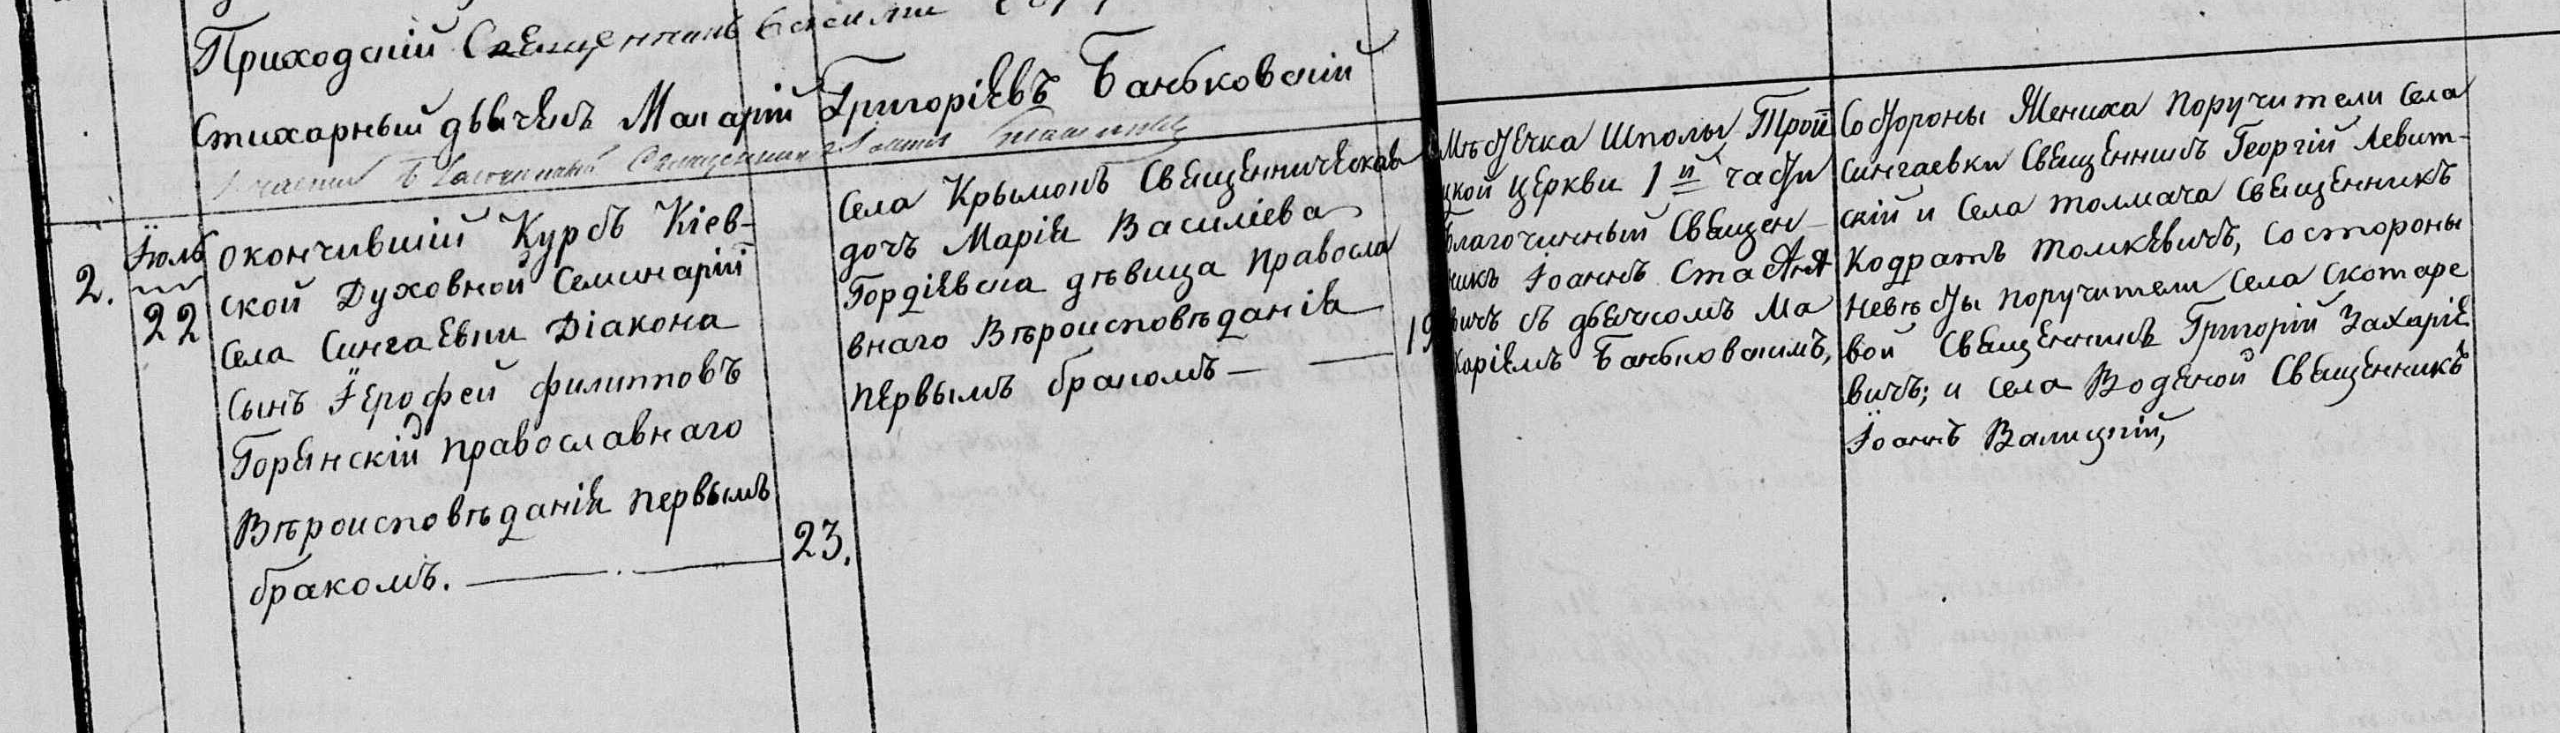 Приходскій Священникъ
Стихарный дьячекъ Макарій Григоріевъ Банбковскій
Благочинный Священникъ
2.
Іюль
22
окончившій Курсъ Кіев-
ской Духовной Семинаріи
Села Сингаевки Діакона
Сынъ Іерофей Филиповъ
Горянскій православнаго
Вѣроисповѣданія первымъ
бракомъ.
23.
Села Крымокъ Священническая
дочь Марія Василіева
Гордіевска дѣвица Правосла
внаго Вѣроисповѣданія
первымъ бракомъ
19
Мѣстечка Шполы Трои
цкой Церкви 1й части
Благочинный Священ-
никъ Іоаннъ
вичъ съ дьячкомъ Ма
каріемъ Банбковскимъ,
Со стороны Жениха поручители Села
Сингаевки Священникъ Георгій Левит-
скій и Села Толмача Священникъ
Кодратъ Томкевичъ, Со стороны
Невѣсты поручители Села Скотаре
вой Священникъ Григорій Захаріе
вичъ; и Села Водяной Священникъ
Іоаннъ Валицкій,